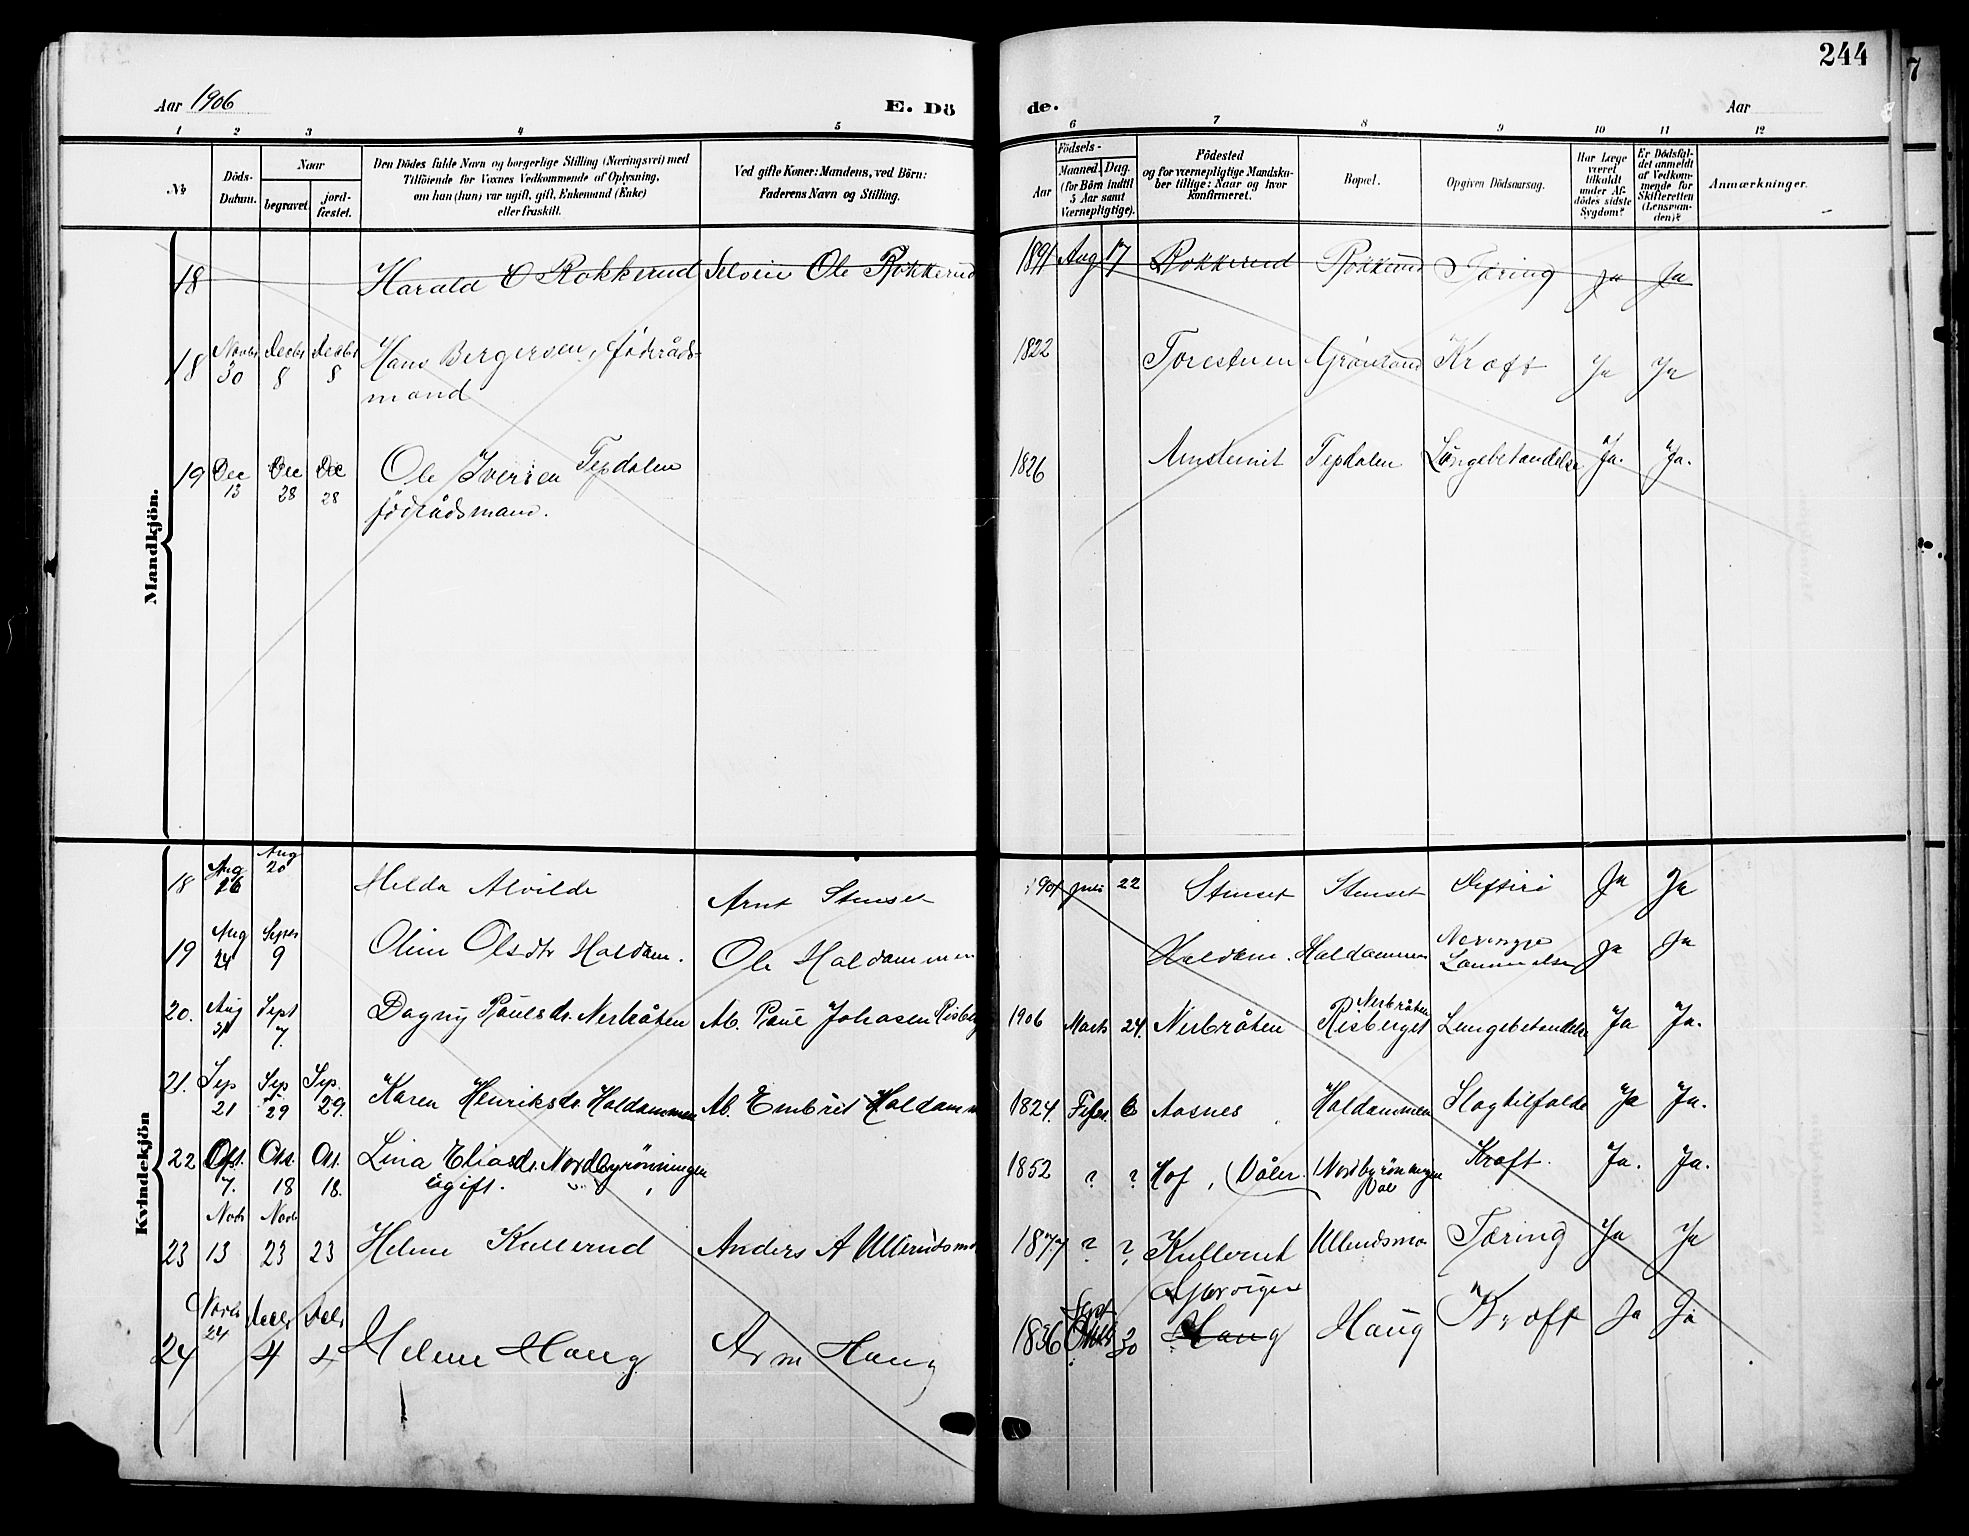 244
Aar 1906
E. Dö
de.
Aar
1 2 3 4 5 6 7 8 9 10 11 12
No
Döds-Datum.
Naar
begravet
jord-fæstet.
Den Dödes fulde Navn og borgerlige Stilling (Næringsvei) med
Tilföiende for Voxnes Vedkommende af Oplysning,
om han (hun) var ugift, gift, Enkemand (Enke)
eller fraskilt.
Ved gifte Koner: Mandens, ved Börn:
Faderens Navn og Stilling.
Födsels-
Aar
Maaned. Dag.
(for Börn indtil
5 Aar samt
Værnepligtige).
Födested
og for værnepligtige Mandska-
ber tillige: Naar og hvor
konfirmeret.
Bopæl.
Opgiven Dödsaarsag.
Har Læge
været
tilkaldt
under Af-
dödes sidste
Sygdom?
Er Dödsfal-
det anmeldt
af Vedkom-
mende for
Skifteretten
(Lensman-
den)?
Anmærkninger.
Mandkjön.
18 Harald O Rokkerud Selveier Ole Rokkerud 1891 Aug 17 Rokkerud Rokkerud Tæring Ja Ja
18 Novbr 30 Decbr 8 Decbr 8 Hans Bergersen, föderåds- 1822 Torestuen Grönland Kræft Ja Ja
mand
19 Dec 13 Dec 28 Dec 28 Ole Iversen Tepdalen 1826 Tepdalen Lungebetændelse Ja. Ja.
föderådsmand.
Kvindekjön
18 Aug 26 Aug 20 Helda Alvilde Arnt Stenset 22 Stenset Stenset Ja Ja
19 Aug 24 Septr 9 Oline Olsdtr Haldam. Ole Haldammen Haldam. Haldammen Ja Ja
20. Aug 31 Sept 7. Dagny Paulsdr. Nerbråten Ab. Paul Johasen Risberg 1906 Marts 24. Nerbråten Nerbråten Risberget Lungebetændelse Ja Ja.
21. Sep 21 Sep 29 Sep. 29. Karen Henriksdr. Haldammen Ab. Embret Haldamm 1824. Febr. 6 Aasnes Haldammen Slagtilfælde Ja Ja.
22 Oft. 7. Oct. 18 Oct. 18. Lina Eliasdr. Nordbyrönningen 1852 ? ? Hof, (Våler. Nordbyrönningen Kræft. Ja. Ja.
ugift.
23 Novb 13 Novb 23 23 Helene Kullerud Anders A Ullerudsmo 1877 ? ? Kullerud Ullerudsmo Tæring Ja Ja
24 Novbr 24 Decbr 4 Decbr 4 Helene Haug Arne Haug 1836 Sept 30 Haug Haug Kræft Ja Ja